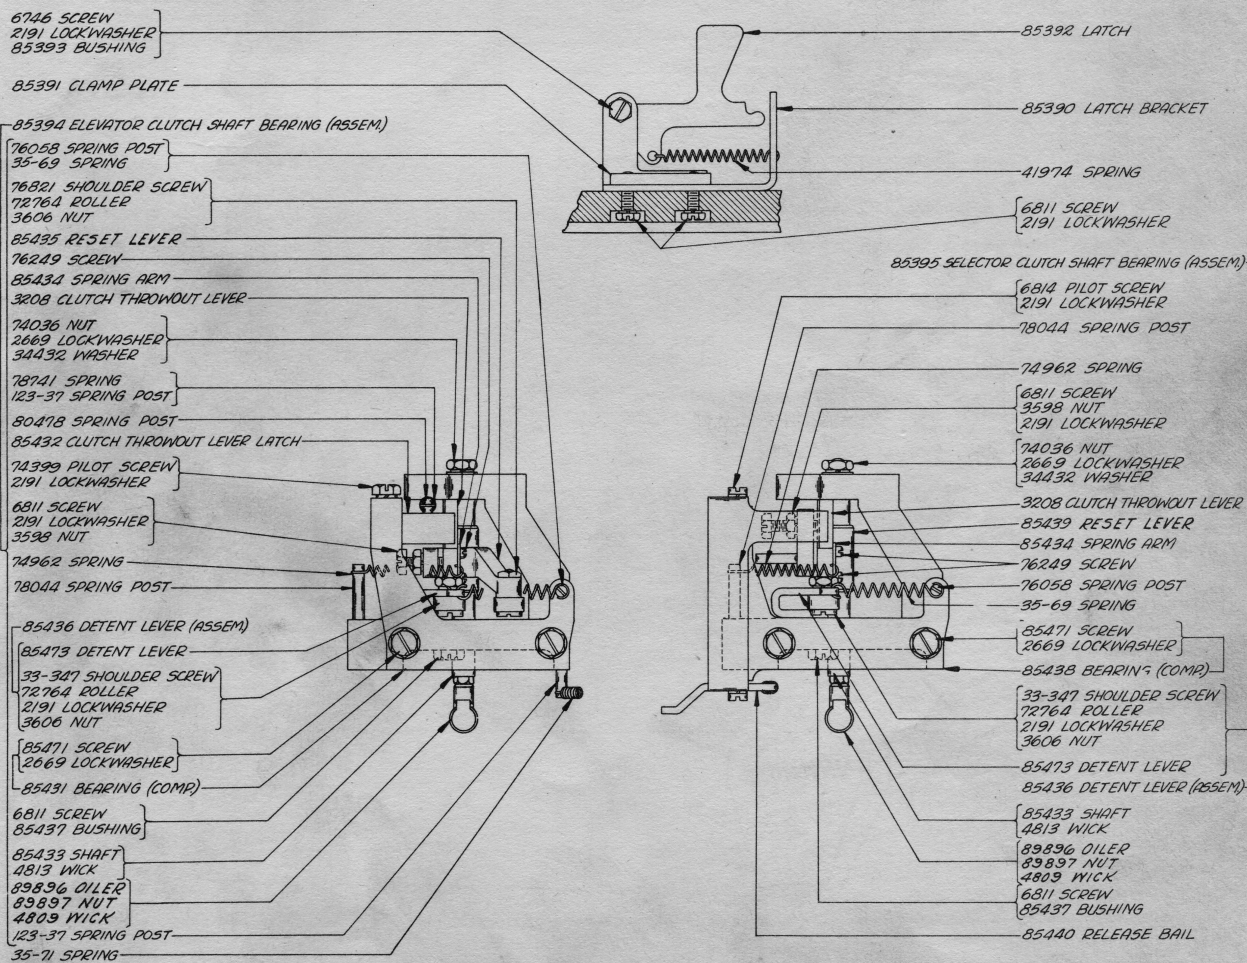 6746 SCREW
2191 LOCKWASHER
85393 BUSHING
85391 CLAMP PLATE
85394 ELEVATOR CLUTCH SHAFT BEARING (ASSEM.)
76058 SPRING POST
35-69 SPRING
76821 SHOULDER SCREW
72764 ROLLER
3606 NUT
85435 RESET LEVER
76249 SCREW
85434 SPRING ARM
3208 CLUTCH THROWOUT LEVER
74036 NUT
2669 LOCKWASHER
34432 WASHER
78741 SPRING
123-37 SPRING POST
80478 SPRING POST
85432 CLUTCH THROWOUT LEVER LATCH
74399 PILOT SCREW
2191 LOCKWASHER
6811 SCREW
2191 LOCKWASHER
3598 NUT
74962 SPRING
78044 SPRING POST
85436 DETENT LEVER (ASSEM)
85473 DETENT LEVER
33-347 SHOULDER SCREW
72764 ROLLER
2191 LOCKWASHER
3606 NUT
85471 SCREW
2669 LOCKWASHER
85431 BEARING (COMP.)
6811 SCREW
85437 BUSHING
85433 SHAFT
4813 WICK
89896 OILER
89897 NUT
4809 WICK
123-37 SPRING POST
35-71 SPRING
85392 LATCH
85390 LATCH BRACKET
41974 SPRING
6811 SCREW
2191 LOCKWASHER
85395 SELECTOR CLUTCH SHAFT BEARING (ASSEM.)
6814 PILOT SCREW
2191 LOCKWASHER
78044 SPRING POST
74962 SPRING
6811 SCREW
3598 NUT
2191 LOCKWASHER
74036 NUT
2669 LOCKWASHER
34432 WASHER
3208 CLUTCH THROWOUT LEVER
85439 RESET LEVER
85434 SPRING ARM
76249 SCREW
76058 SPRING POST
35-69 SPRING
85471 SCREW
2669 LOCKWASHER
85438 BEARING (COMP.)
33-347 SHOULDER SCREW
72764 ROLLER
2191 LOCKWASHER
3606 NUT
85473 DETENT LEVER
85436 DETENT LEVER (ASSEM)
85433 SHAFT
4813 WICK
89896 OILER
89897 NUT
4809 WICK
6811 SCREW
85437 BUSHING
85440 RELEASE BAIL